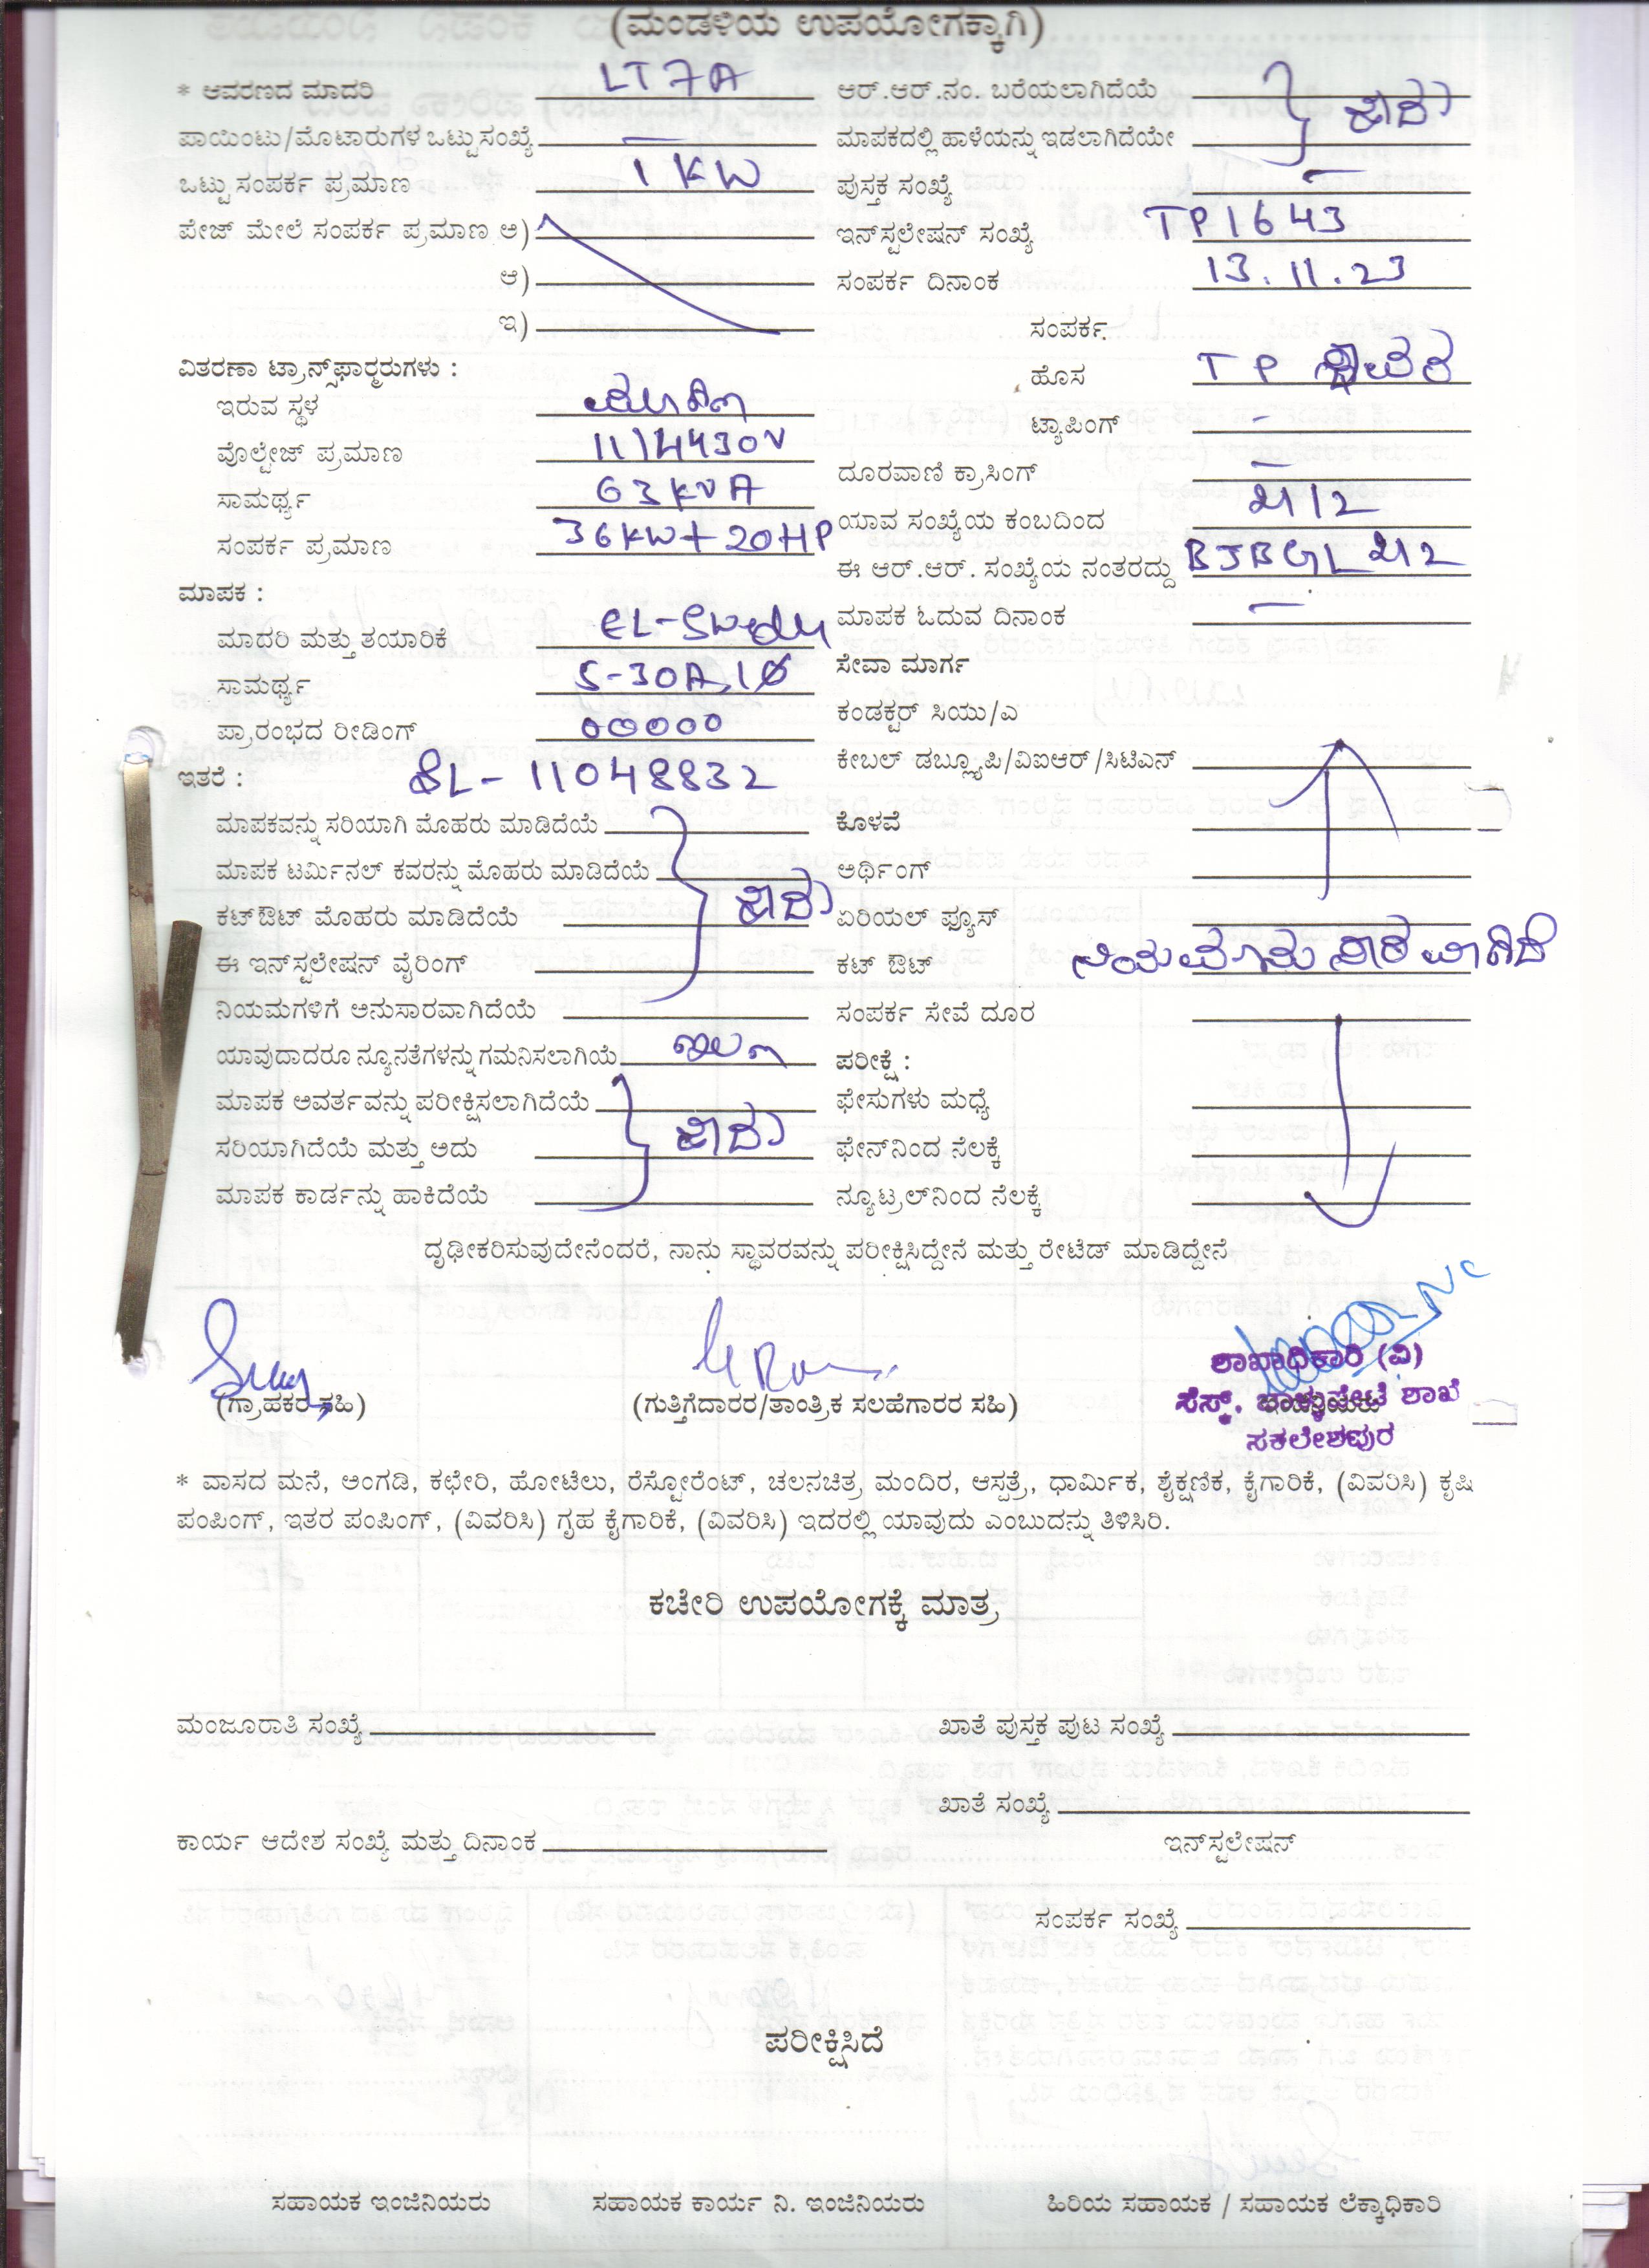 (ಮಂಡಳಿಯ ಉಪಯೋಗಕ್ಕಾಗಿ)
* ಆವರಣದ ಮಾದರಿ LT7A
ಪಾಯಿಂಟು/ಮೊಟಾರುಗಳ ಒಟ್ಟು ಸಂಖ್ಯೆ —
ಒಟ್ಟು ಸಂಪರ್ಕ ಪ್ರಮಾಣ 1 KW
ಪೇಜ್ ಮೇಲೆ ಸಂಪರ್ಕ ಪ್ರಮಾಣ ಅ)
ಆ)
ಇ)
ವಿತರಣಾ ಟ್ರಾನ್ಸ್‌ಫಾರ್ಮರುಗಳು :
ಇರುವ ಸ್ಥಳ
ವೊಲ್ಟೇಜ್ ಪ್ರಮಾಣ 11/4430V
ಸಾಮರ್ಥ್ಯ 63 KVA
ಸಂಪರ್ಕ ಪ್ರಮಾಣ 36KW+20HP
ಮಾಪಕ :
ಮಾದರಿ ಮತ್ತು ತಯಾರಿಕೆ
ಸಾಮರ್ಥ್ಯ 5-30A, 1Ø
ಪ್ರಾರಂಭದ ರೀಡಿಂಗ್ 00000
ಇತರೆ : SL- 11048832
ಮಾಪಕವನ್ನು ಸರಿಯಾಗಿ ಮೊಹರು ಮಾಡಿದೆಯೆ
ಮಾಪಕ ಟರ್ಮಿನಲ್ ಕವರನ್ನು ಮೊಹರು ಮಾಡಿದೆಯೆ
ಕಟ್‌ಔಟ್ ಮೊಹರು ಮಾಡಿದೆಯೆ ಹೌದು
ಈ ಇನ್‌ಸ್ಟಲೇಷನ್ ವೈರಿಂಗ್
ನಿಯಮಗಳಿಗೆ ಅನುಸಾರವಾಗಿದೆಯೆ
ಯಾವುದಾದರೂ ನ್ಯೂನತೆಗಳನ್ನು ಗಮನಿಸಲಾಗಿಯೆ ಇಲ್ಲ
ಮಾಪಕ ಅವರ್ತವನ್ನು ಪರೀಕ್ಷಿಸಲಾಗಿದೆಯೆ
ಸರಿಯಾಗಿದೆಯೆ ಮತ್ತು ಅದು ಹೌದು
ಮಾಪಕ ಕಾರ್ಡನ್ನು ಹಾಕಿದೆಯೆ
ಆರ್.ಆರ್.ನಂ. ಬರೆಯಲಾಗಿದೆಯೆ ಹೌದು
ಮಾಪಕದಲ್ಲಿ ಹಾಳೆಯನ್ನು ಇಡಲಾಗಿದೆಯೇ
ಪುಸ್ತಕ ಸಂಖ್ಯೆ —
ಇನ್‌ಸ್ಟಲೇಷನ್ ಸಂಖ್ಯೆ TP1643
ಸಂಪರ್ಕ ದಿನಾಂಕ 13.11.23
ಸಂಪರ್ಕ
ಹೊಸ TP
ಟ್ಯಾಪಿಂಗ್ -
ದೂರವಾಣಿ ಕ್ರಾಸಿಂಗ್ —
ಯಾವ ಸಂಖ್ಯೆಯ ಕಂಬದಿಂದ
ಈ ಆರ್.ಆರ್. ಸಂಖ್ಯೆಯ ನಂತರದ್ದು
ಮಾಪಕ ಓದುವ ದಿನಾಂಕ —
ಸೇವಾ ಮಾರ್ಗ
ಕಂಡಕ್ಟರ್ ಸಿಯು/ಎ
ಕೇಬಲ್ ಡಬ್ಲ್ಯೂಪಿ/ವಿಐಆರ್/ಸಿಟಿಎನ್
ಕೊಳವೆ
ಅರ್ಥಿಂಗ್
ಏರಿಯಲ್ ಫ್ಯೂಸ್
ಕಟ್ ಔಟ್ ನಿಯಮಾನುಸಾರವಾಗಿದೆ
ಸಂಪರ್ಕ ಸೇವೆ ದೂರ
ಪರೀಕ್ಷೆ :
ಫೇಸುಗಳು ಮಧ್ಯೆ
ಫೇನ್‌ನಿಂದ ನೆಲಕ್ಕೆ
ನ್ಯೂಟ್ರಲ್‌ನಿಂದ ನೆಲಕ್ಕೆ
ದೃಢೀಕರಿಸುವುದೇನೆಂದರೆ, ನಾನು ಸ್ಥಾವರವನ್ನು ಪರೀಕ್ಷಿಸಿದ್ದೇನೆ ಮತ್ತು ರೇಟೆಡ್ ಮಾಡಿದ್ದೇನೆ
(ಗ್ರಾಹಕರ ಸಹಿ) (ಗುತ್ತಿಗೆದಾರರ/ತಾಂತ್ರಿಕ ಸಲಹೆಗಾರರ ಸಹಿ)
ಶಾಖಾಧಿಕಾರಿ (ವಿ)
ಸೆಸ್ಕ್, ಶಾಖೆ
ಸಕಲೇಶಪುರ
* ವಾಸದ ಮನೆ, ಅಂಗಡಿ, ಕಛೇರಿ, ಹೋಟೆಲು, ರೆಸ್ಟೋರೆಂಟ್, ಚಲನಚಿತ್ರ ಮಂದಿರ, ಆಸ್ಪತ್ರೆ, ಧಾರ್ಮಿಕ, ಶೈಕ್ಷಣಿಕ, ಕೈಗಾರಿಕೆ, (ವಿವರಿಸಿ) ಕೃಷಿ
ಪಂಪಿಂಗ್, ಇತರ ಪಂಪಿಂಗ್, (ವಿವರಿಸಿ) ಗೃಹ ಕೈಗಾರಿಕೆ, (ವಿವರಿಸಿ) ಇದರಲ್ಲಿ ಯಾವುದು ಎಂಬುದನ್ನು ತಿಳಿಸಿರಿ.
ಕಚೇರಿ ಉಪಯೋಗಕ್ಕೆ ಮಾತ್ರ
ಮಂಜೂರಾತಿ ಸಂಖ್ಯೆ ಖಾತೆ ಪುಸ್ತಕ ಪುಟ ಸಂಖ್ಯೆ
ಖಾತೆ ಸಂಖ್ಯೆ
ಕಾರ್ಯ ಆದೇಶ ಸಂಖ್ಯೆ ಮತ್ತು ದಿನಾಂಕ ಇನ್‌ಸ್ಟಲೇಷನ್
ಸಂಪರ್ಕ ಸಂಖ್ಯೆ
ಪರೀಕ್ಷಿಸಿದೆ
ಸಹಾಯಕ ಇಂಜಿನಿಯರು ಸಹಾಯಕ ಕಾರ್ಯ ನಿ. ಇಂಜಿನಿಯರು ಹಿರಿಯ ಸಹಾಯಕ / ಸಹಾಯಕ ಲೆಕ್ಕಾಧಿಕಾರಿ